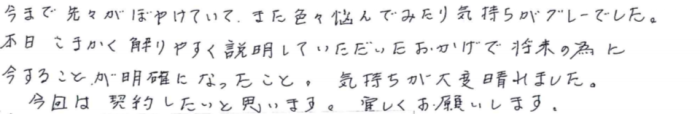 今まで先々がぼやけていて、また色々悩んでみたり気持ちがグレーでした。
本日こまかく解りやすく説明していただいたおかげで将来の為に
今することが明確になったこと。気持ちが大変晴れました。
今回は契約したいと思います。宜しくお願いします。